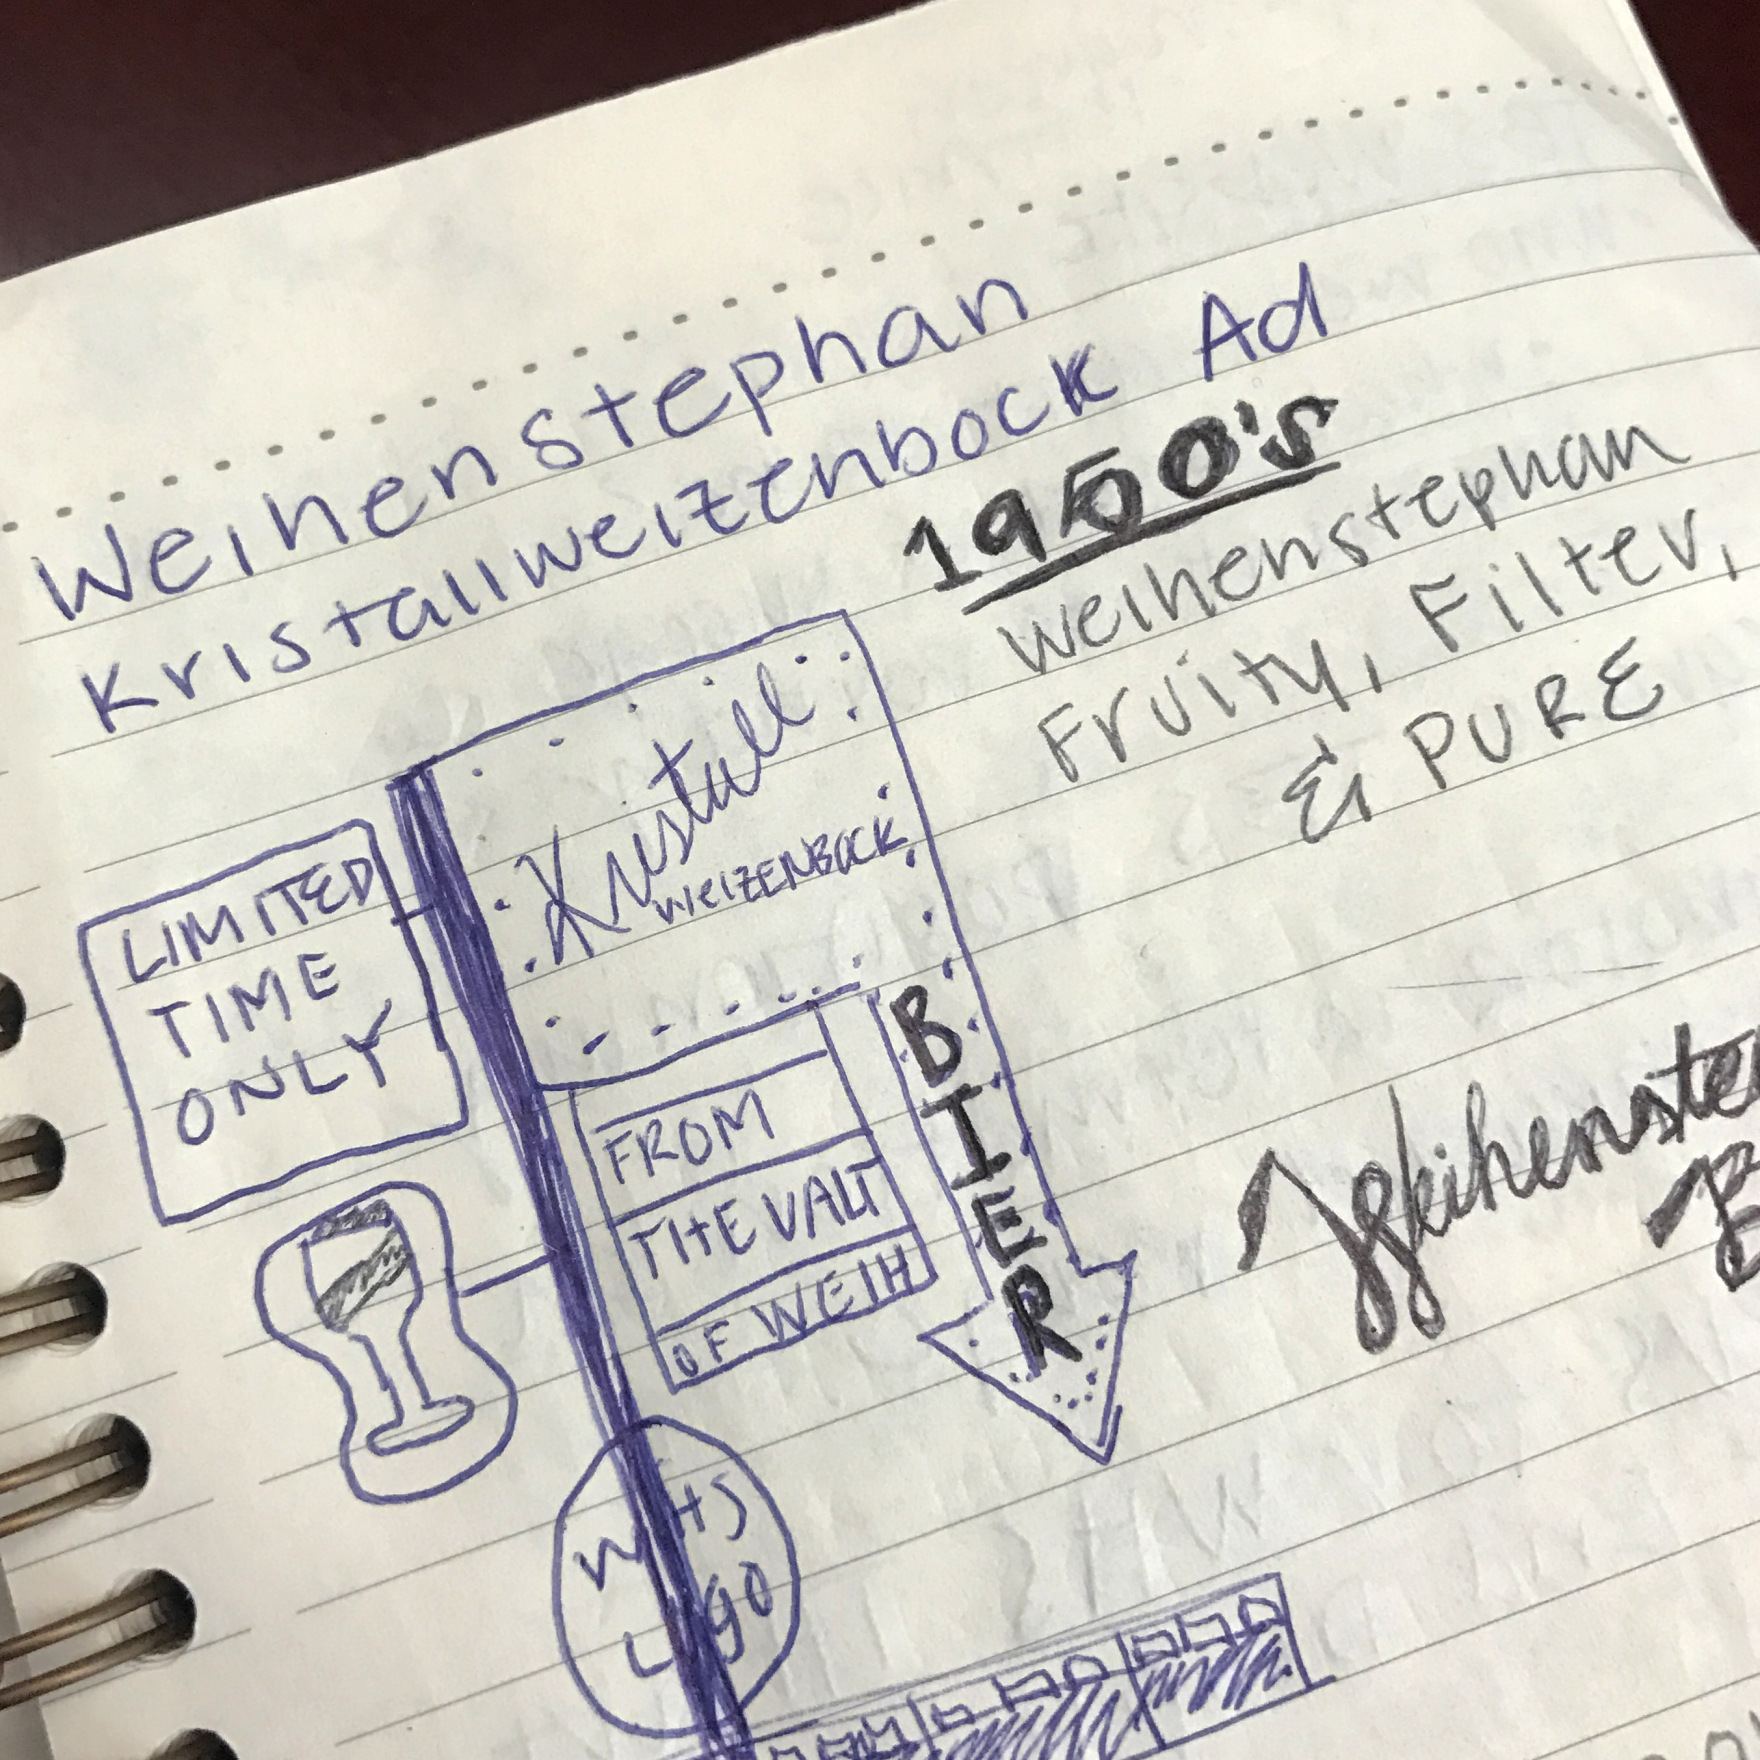 Weihenstephan
Kristallweizenbock Ad
1950's
Weihenstephan
Fruity, Filter,
& PURE
Kristall
WEIZENBOCK
LIMITED
TIME
ONLY
BIER
FROM
THE VALT
OF WEIH
WHS
Logo